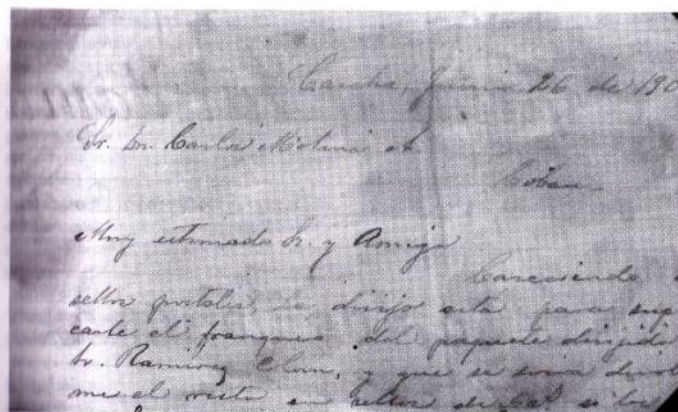 Carcha, Junio 26 de 190
Sr. Dn. Carlos
Coban
Muy estimado Sr. y Amigo
Careciendo
sellos postales le dirijo esta para sup
carle el franqueo del paquete dirijido
Sr. Ramirez y que se sirva devol
me el resto en sellos de